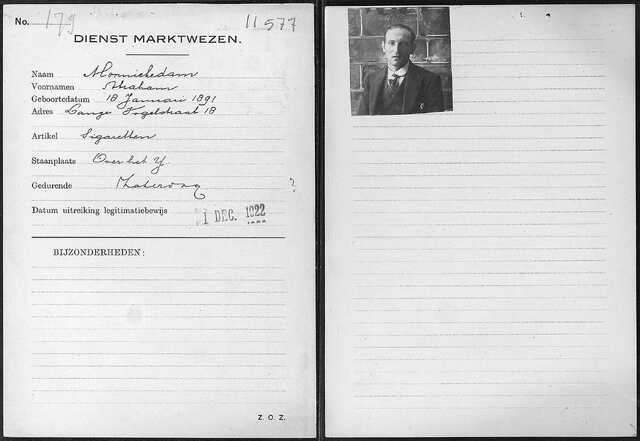 No. 179 11577
DIENST MARKTWEZEN.
Naam Monnickedam
Voornamen Abraham
Geboortedatum 18 Januari 1891
Adres Lange Vogelstraat 18
Artikel Sigaretten
Staanplaats Over het Y.
Gedurende Zaterdag ?
Datum uitreiking legitimatiebewijs 1 DEC. 1922
BIJZONDERHEDEN:
Z. O. Z.
1.